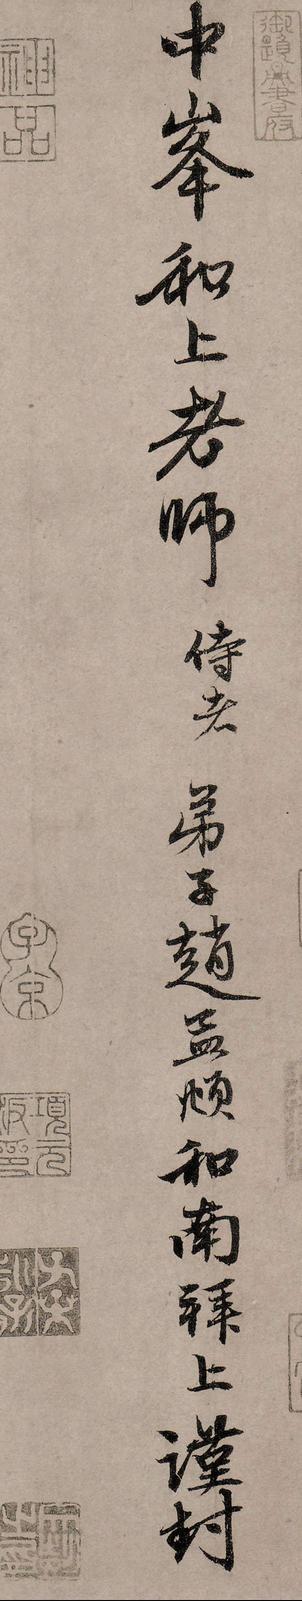 中峯和上老師 侍者 弟子趙孟頫和南拜上謹封
神品
子京